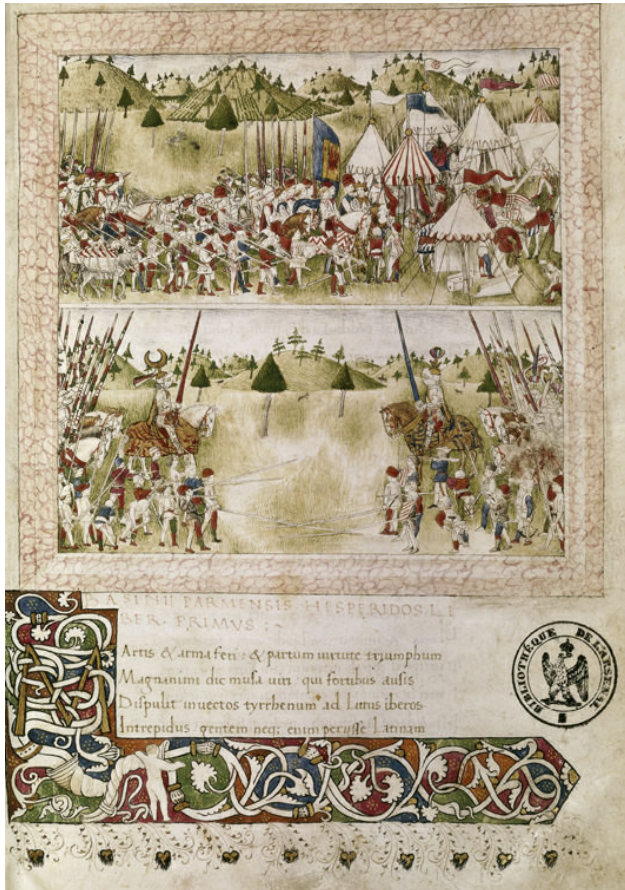 BASINII PARMENSIS HESPERIDOS.LI
BER. PRIMVS :~
MArtis & arma feri : & partum uirtute triumphum
Magnanimi dic musa uiri qui fortibus ausis
Dispulit inuectos tyrrhenum ad Littus iberos
Intrepidus gentem neq; enim periisse Latinam
BIBLIOTHÈQUE DE L'ARSENAL